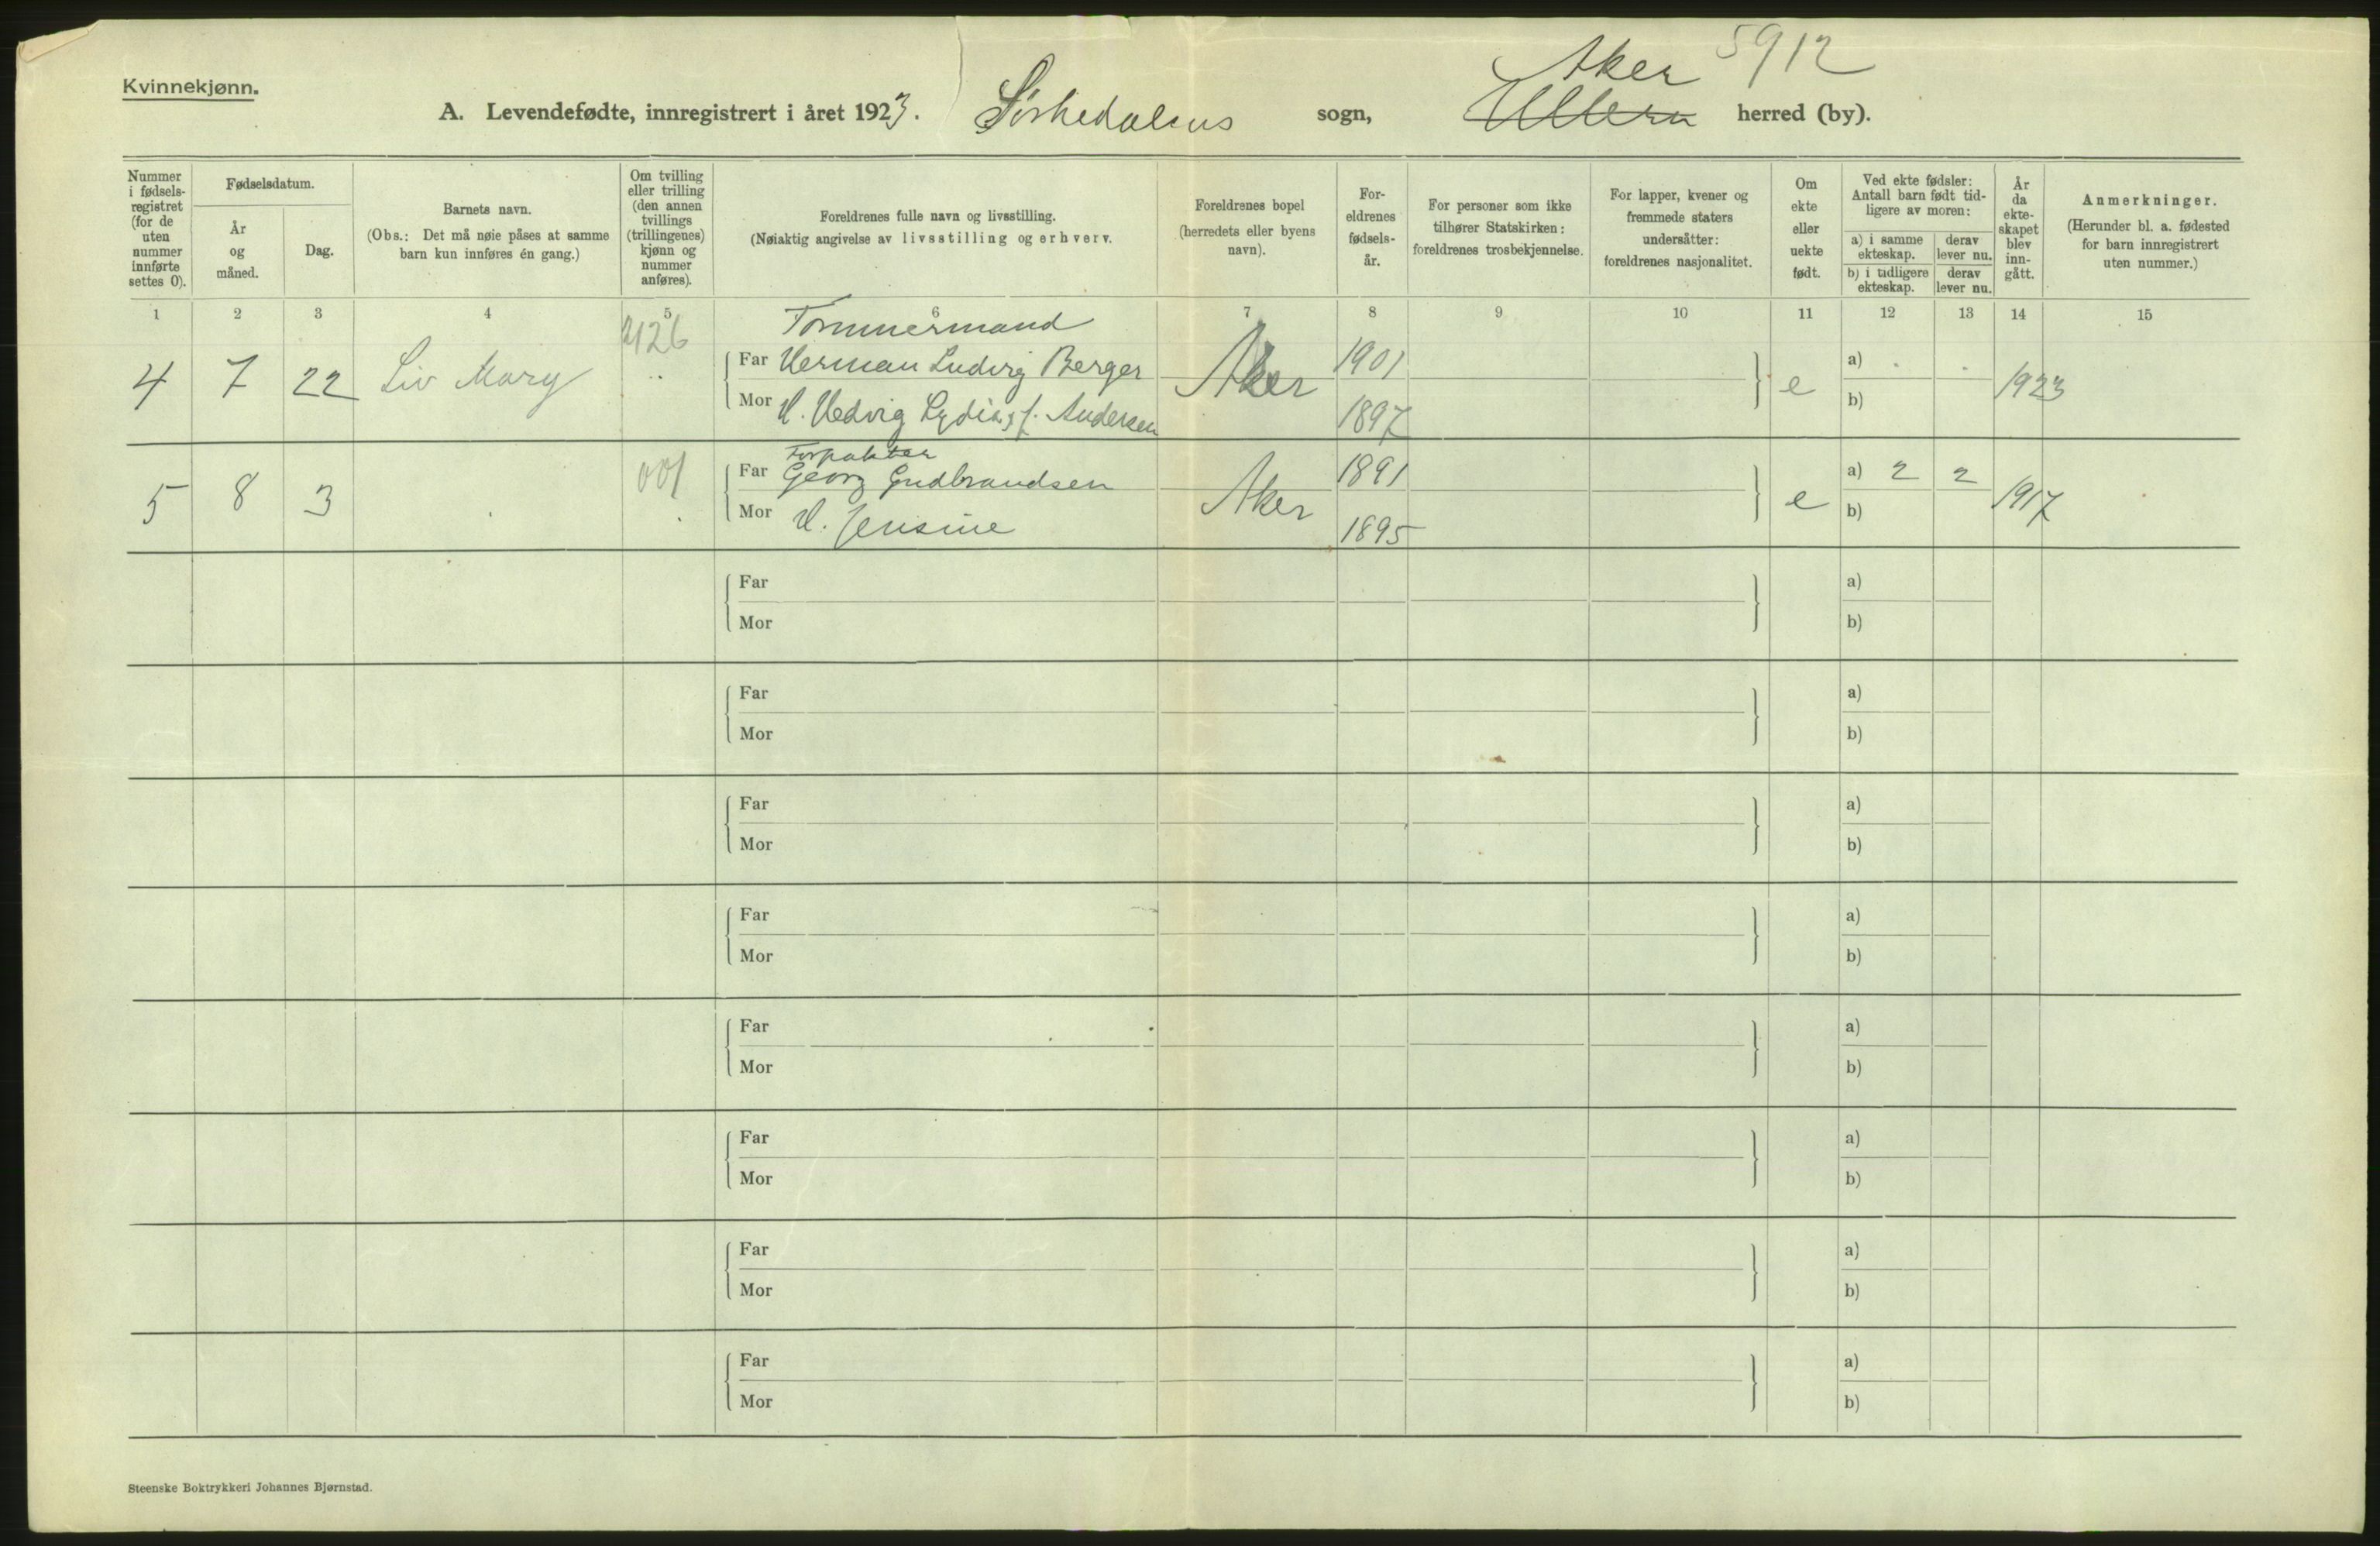 Kvinnekjønn.
Aker 5912
A. Levendefødte, innregistrert i året 1923. Sørkedalens sogn, Ullern herred (by).
Nummer i fødsels-registret (for de uten nummer innførte settes 0).
Fødselsdatum.
År og måned.
Dag.
Barnets navn.
(Obs.: Det må nøie påses at samme barn kun innføres én gang.)
Om tvilling eller trilling (den annen tvillings (trillingenes) kjønn og nummer anføres).
Foreldrenes fulle navn og livsstilling.
(Nøiaktig angivelse av livsstilling og erhverv.
Foreldrenes bopel (herredets eller byens navn).
For-eldrenes fødsels-år.
For personer som ikke tilhører Statskirken: foreldrenes trosbekjennelse.
For lapper, kvener og fremmede staters undersåtter: foreldrenes nasjonalitet.
Om ekte eller uekte født.
Ved ekte fødsler: Antall barn født tid-ligere av moren:
a) i samme ekteskap.
derav lever nu.
b) i tidligere ekteskap.
derav lever nu.
År da ekte-skapet blev inn-gått.
Anmerkninger.
(Herunder bl. a. fødested for barn innregistrert uten nummer.)
1 2 3 4 5 6 7 8 9 10 11 12 13 14 15
Tømmermand
4 7 22 Liv Mary Far Herman Ludvig Berger Aker 1901 e a) 1923
Mor H. Hedvig Lydia, f. Andersen 1897 b)
Forpakter
5 8 3 001 Far Georg Gudbrandsen Aker 1891 e a) 2 2 1917
Mor H. Jensine 1895 b)
Far a)
Mor b)
Far a)
Mor b)
Far a)
Mor b)
Far a)
Mor b)
Far a)
Mor b)
Far a)
Mor b)
Far a)
Mor b)
Far a)
Mor b)
Steenske Boktrykkeri Johannes Bjørnstad.